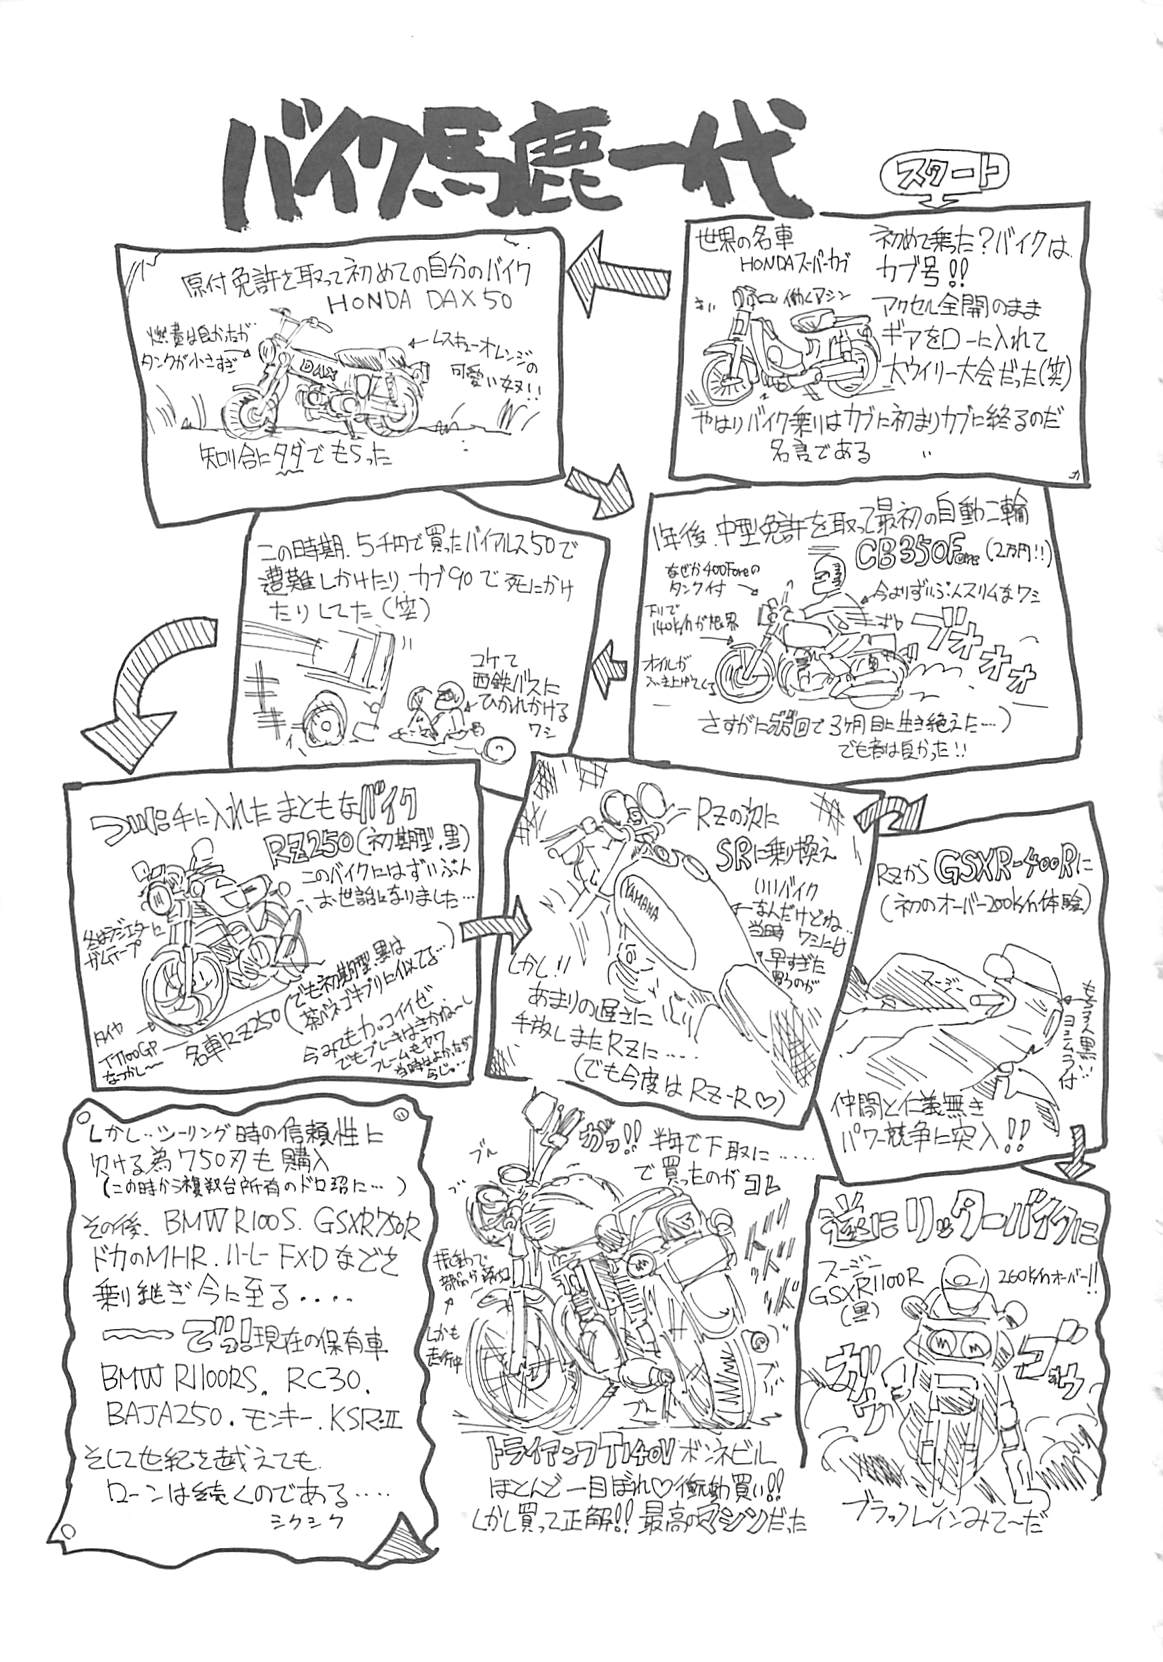 バイク馬鹿一代
スタート
世界の名車
HONDAスーパーカブ
働くマシン
初めて乗った?バイクは
カブ号!!
アクセル全開のまま
ギアをローに入れて
大ウイリー大会だった(笑)
やはりバイク乗りはカブに初まりカブに終るのだ
名言である
原付免許を取って初めての自分のバイク
HONDA DAX50
燃費は良かったが
タンクが小さすぎ
レスキューオレンジの
可愛い奴!!
DAX
知り合にタダでもらった
1年後、中型免許を取って最初の自動二輪
CB350Four(2万円!!)
なぜか400Fourの
タンク付
今よりずいぶんスリムなワシ
下りで
140k/hが限界
オイルが
ブオォォォ
さすがに
3ヶ月目に生き絶えた…)
でも音は良かった!!
この時期、5千円で買ったバイアルス50で
遭難しかけたり カブ90で死にかけ
たりしてた(笑)
コケて
西鉄バスに
ひかれかける
ワシ
手に入れた まともなバイク
RZ250(初期型、黒)
このバイクにはずいぶん
お世話になりました…
ガムテープ
タイヤ
TT100GP
なつかし~
名車RZ250
(でも初期型黒は
茶バネゴキブリに似てる…)
今みてもカッコイイぜ
でもブレーキはきかねーし
フレームもヤワ
RZの次に
SRに乗り換え
いいバイク
なんだけどね…
当時 ワシには
早すぎた
YAMAHA
しかし!!
あまりの遅さに
手放しまたRZに……
(でも今度はRZ-R♡)
RZから GSXR-400Rに
(初のオーバー200k/h体験)
スージー
ヨシムラ付
仲間と仁義無き
パワー競争に突入!!
逆にリッターバイクに
スージー
GSXR1100R
(黒)
260k/hオーバー!!
ゴゥゥ
ブラックレインみて~だ
半年で下取に……
で買ったのがコレ
ガッ!!
ブル
振動で
部品が
しかも
走行中
トライアンフT140V ボンネビル
ほとんど一目ぼれ♡衝動買い!!
しかし買って正解!! 最高のマシンだった
しかし…ツーリング時の信頼性に
欠ける為750刃も購入
(この時から複数台所有のドロ沼に…)
その後、BMW R100S、GSXR750R
ドカのMHR、ハーレーFXDなどを
乗り継ぎ今に至る・・・・
でっ!現在の保有車
BMW R1100RS、RC30、
BAJA250、モンキー、KSR-II
そして世紀を越えても
ローンは続くのである・・・・
シクシク